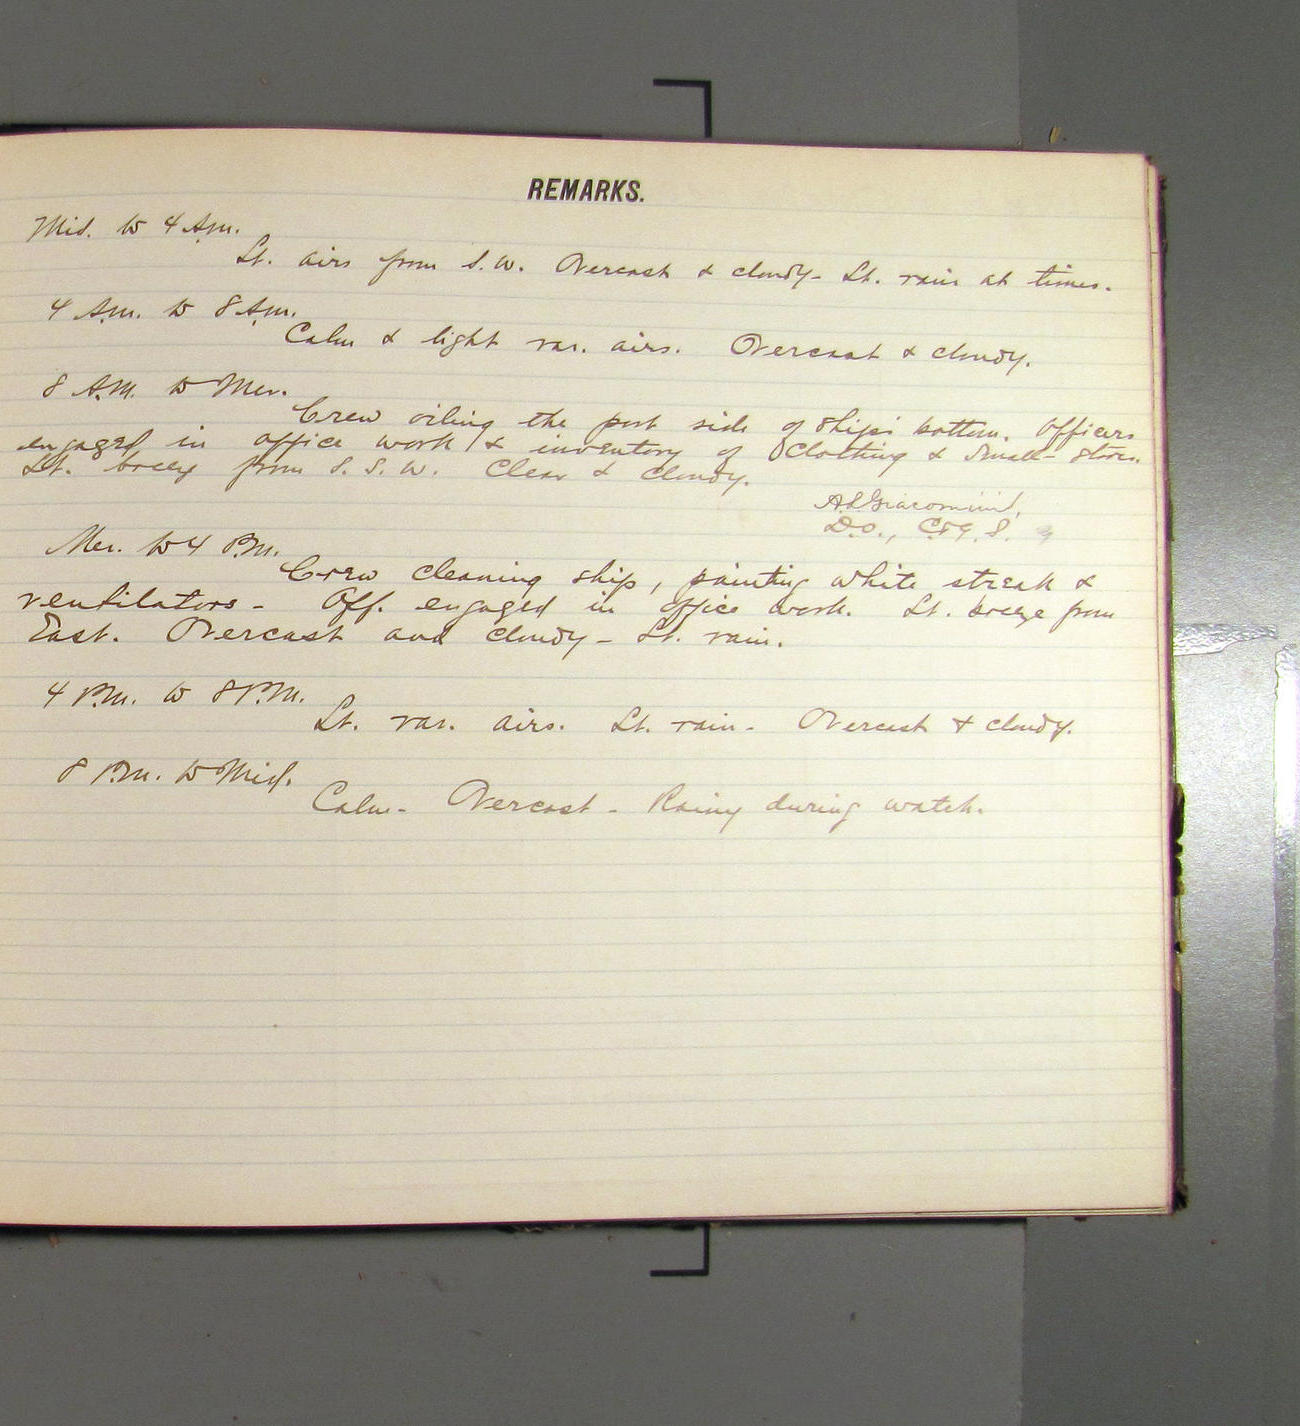 REMARKS.
Mid. to 4 A.m.
Lt. airs from S.W. Overcast & cloudy - Lt. rain at times.
4 A.m. to 8 A.m.
Calm & light var. airs. Overcast & cloudy.
8 A.M. to Mer.
Crew oiling the port side of ship's bottom. Officers
engaged in office work & inventory of Clothing & Small-Stores.
Lt. breeze from S.S.W. Clear & cloudy.
A.L. Giacomini,
D.O.,
Mer. to 4 P.m.
Crew cleaning ship, painting white streak &
ventilators - Off. engaged in office work. Lt. breeze from
East. Overcast and cloudy - Lt. rain.
4 P.m. to 8 P.M.
Lt. var. airs. Lt. rain - Overcast & cloudy.
8 P.m. to Mid.
Calm - Overcast - Rainy during watch.